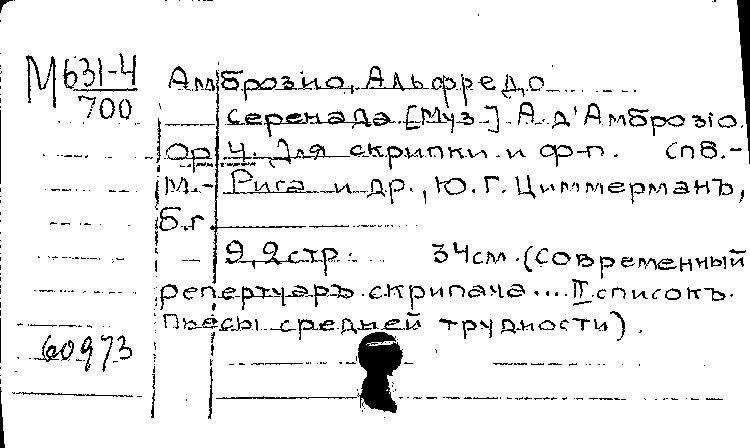 М 631-4
700
Амброзио, Альфредо
Серенада [Муз.] А. д'Амброзіо.
Ор 4. Для скрипки и ф-п. СПб.-
М.- Рига и др., Ю. Г. Циммерманъ,
б.г.
9, 2 стр. 34 см. (Современный
репертуаръ скрипача... II списокъ.
Пьесы средней трудности).
60973